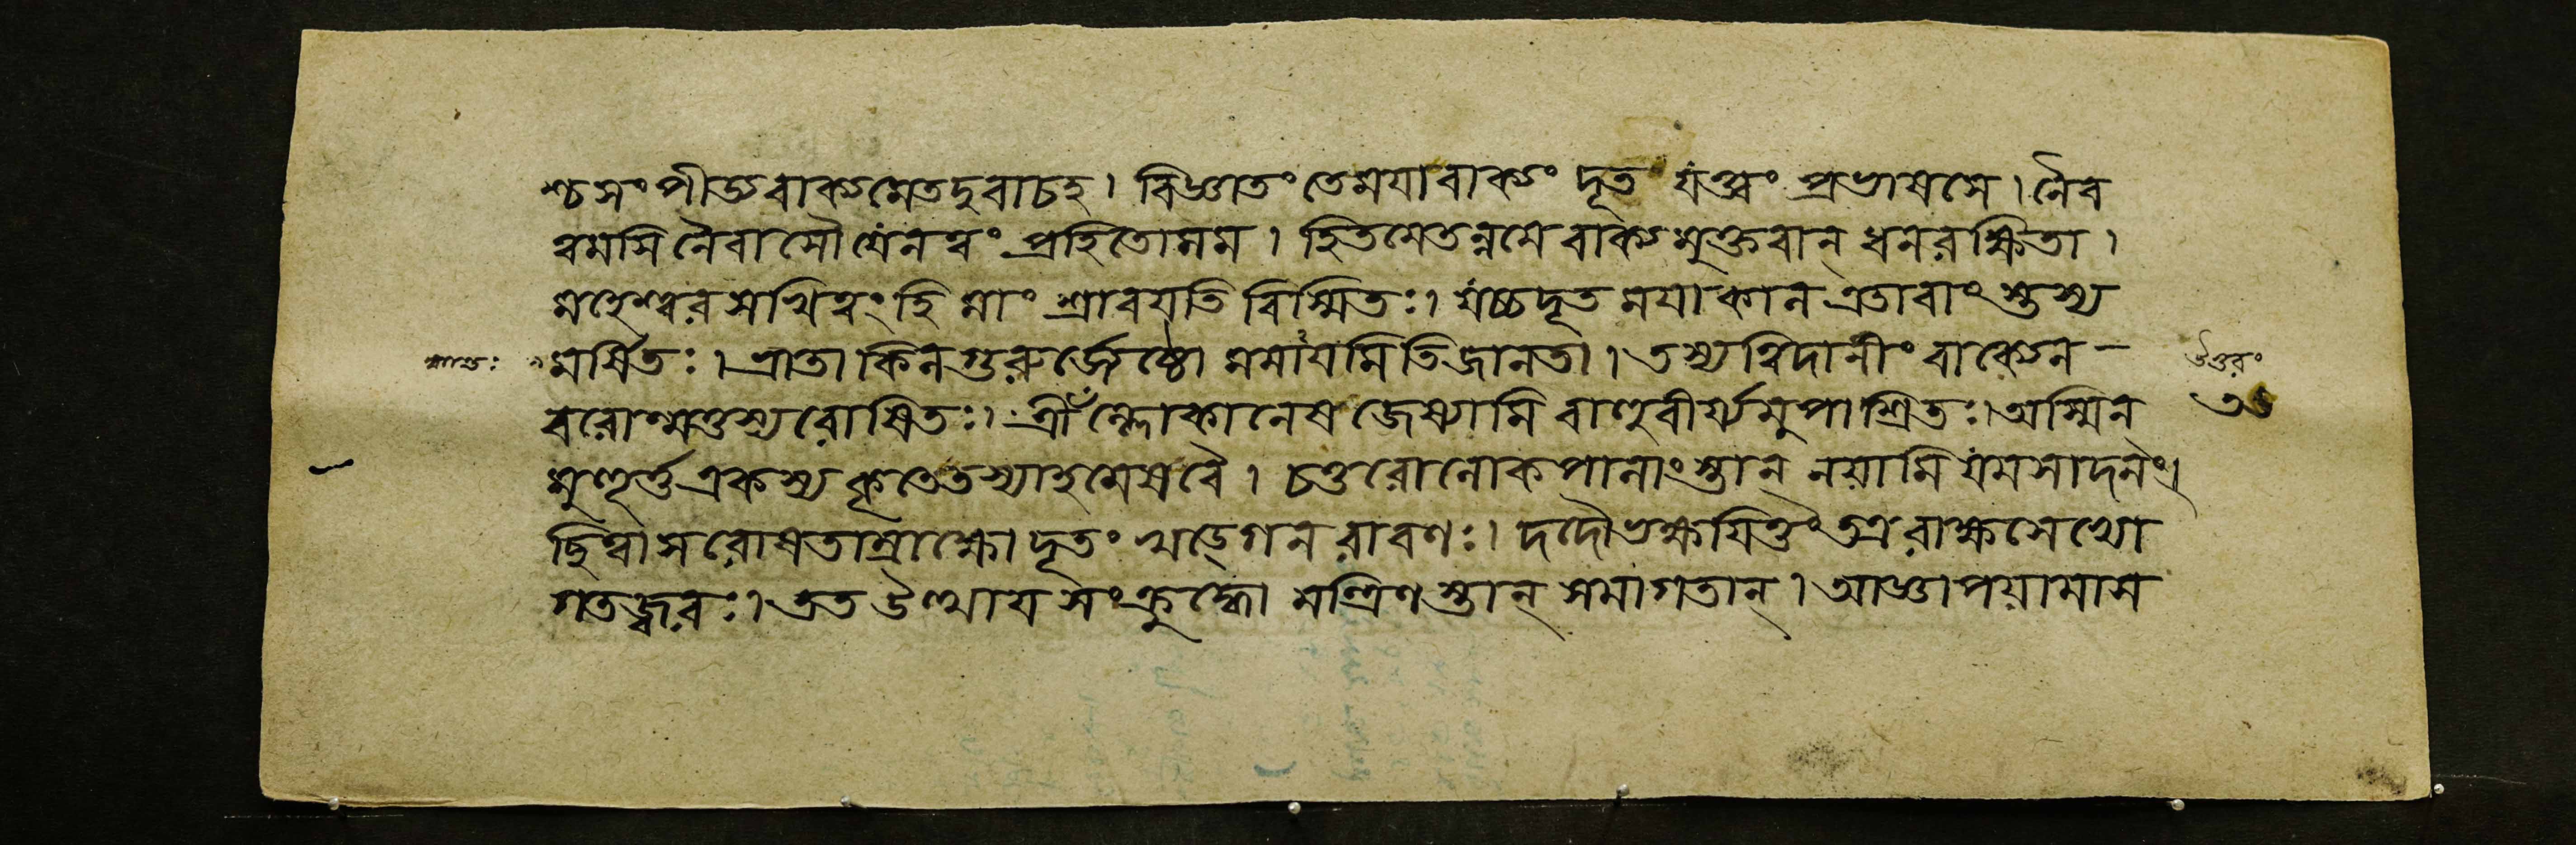 শ্চ সংপীড্য বাক্যমেতদুবাচ হ। বিজ্ঞাতং তে ময়া বাক্যং দূত যত্ত্বং প্রভাষসে। নৈব
ত্বমসি নৈবাসৌ যেন ত্বং প্রহিতো মম। হিতমেতন্ন মে বাক্যমুক্তবান্ ধনরক্ষিতা।
মহেশ্বরসখিত্বং হি মাং শ্রাবয়তি বিস্মিতঃ। যচ্চ দূত ময়া কাল এতাবাংস্তস্য
মর্ষিতঃ। ভ্রাতা কিল গুরুর্জ্যেষ্ঠো মমায়মিতি জানতা। তস্য ত্বিদানীং বাক্যেন
বরোন্মত্তস্য রোষিতঃ। ত্রীঁল্লোকানেষ জেষ্যামি বাহুবীর্য্যমুপাশ্রিতঃ। অস্মিন্
মুহূর্ত্ত একস্য কৃতে তস্যাহমেষ বৈ। চতুরো লোকপালাংস্তান্ নয়ামি যমসাদনং।
ছিত্ত্বা স রোষতাম্রাক্ষো দূতং খড়্গেন রাবণঃ। দদৌ ভক্ষয়িতুং তত্র রাক্ষসেভ্যো
গতজ্বরঃ। তত উত্থায় সংক্রুদ্ধো মন্ত্রিণস্তান্ সমাগতান্। আজ্ঞাপয়ামাস
উত্তরং